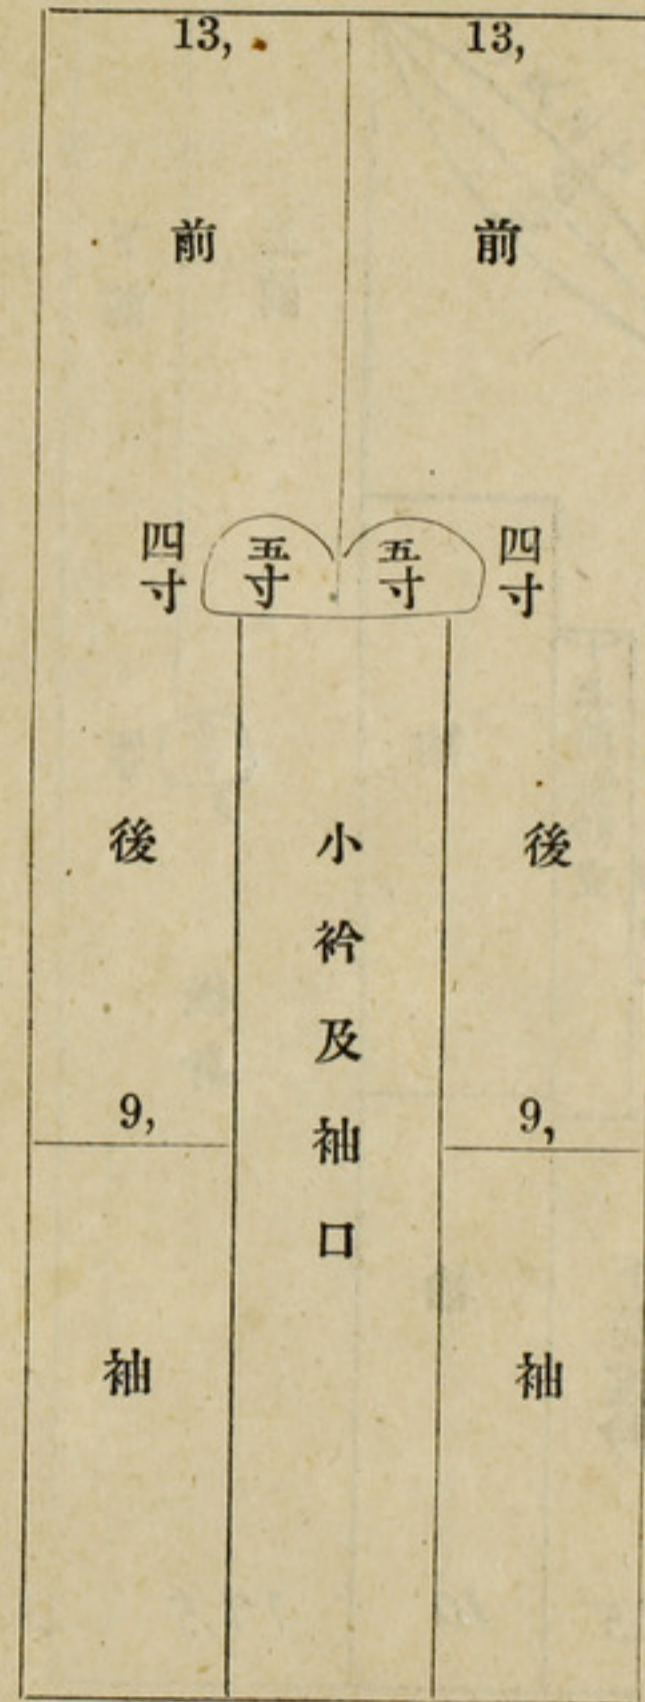 13,
13,
前
前
四寸
五寸
五寸
四寸
後
小衿及袖口
後
9,
9,
袖
袖